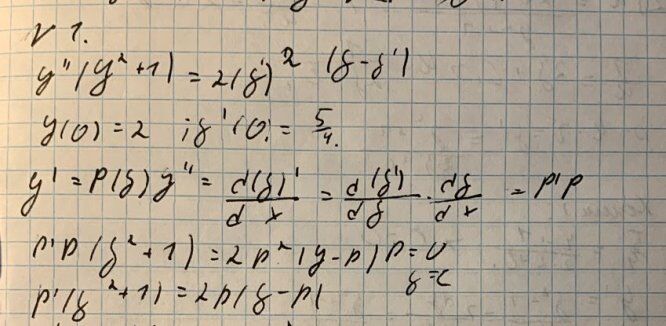 № 1.
y''(y²+1) = 2(y')² (y-y')
y(0) = 2 ; y'(0) = 5/4.
y' = P(y) y'' = d(y)'/dx = d(y')/dy · dy/dx = p'p
p'p(y²+1) = 2p²(y-p) p=0
y=c
p'(y²+1) = 2p(y-p)